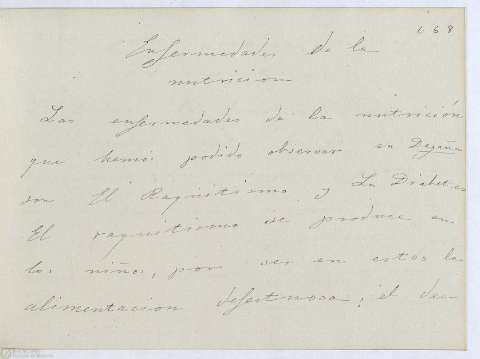 168
Enfermedades de la
nutricion
Las enfermedades de la nutrición
que hemos podido observar en Degaña
son El Raquitismo y La Diabetes
El raquitismo se produce en
los niños, por ser en estos la
alimentacion defectuosa; el des-